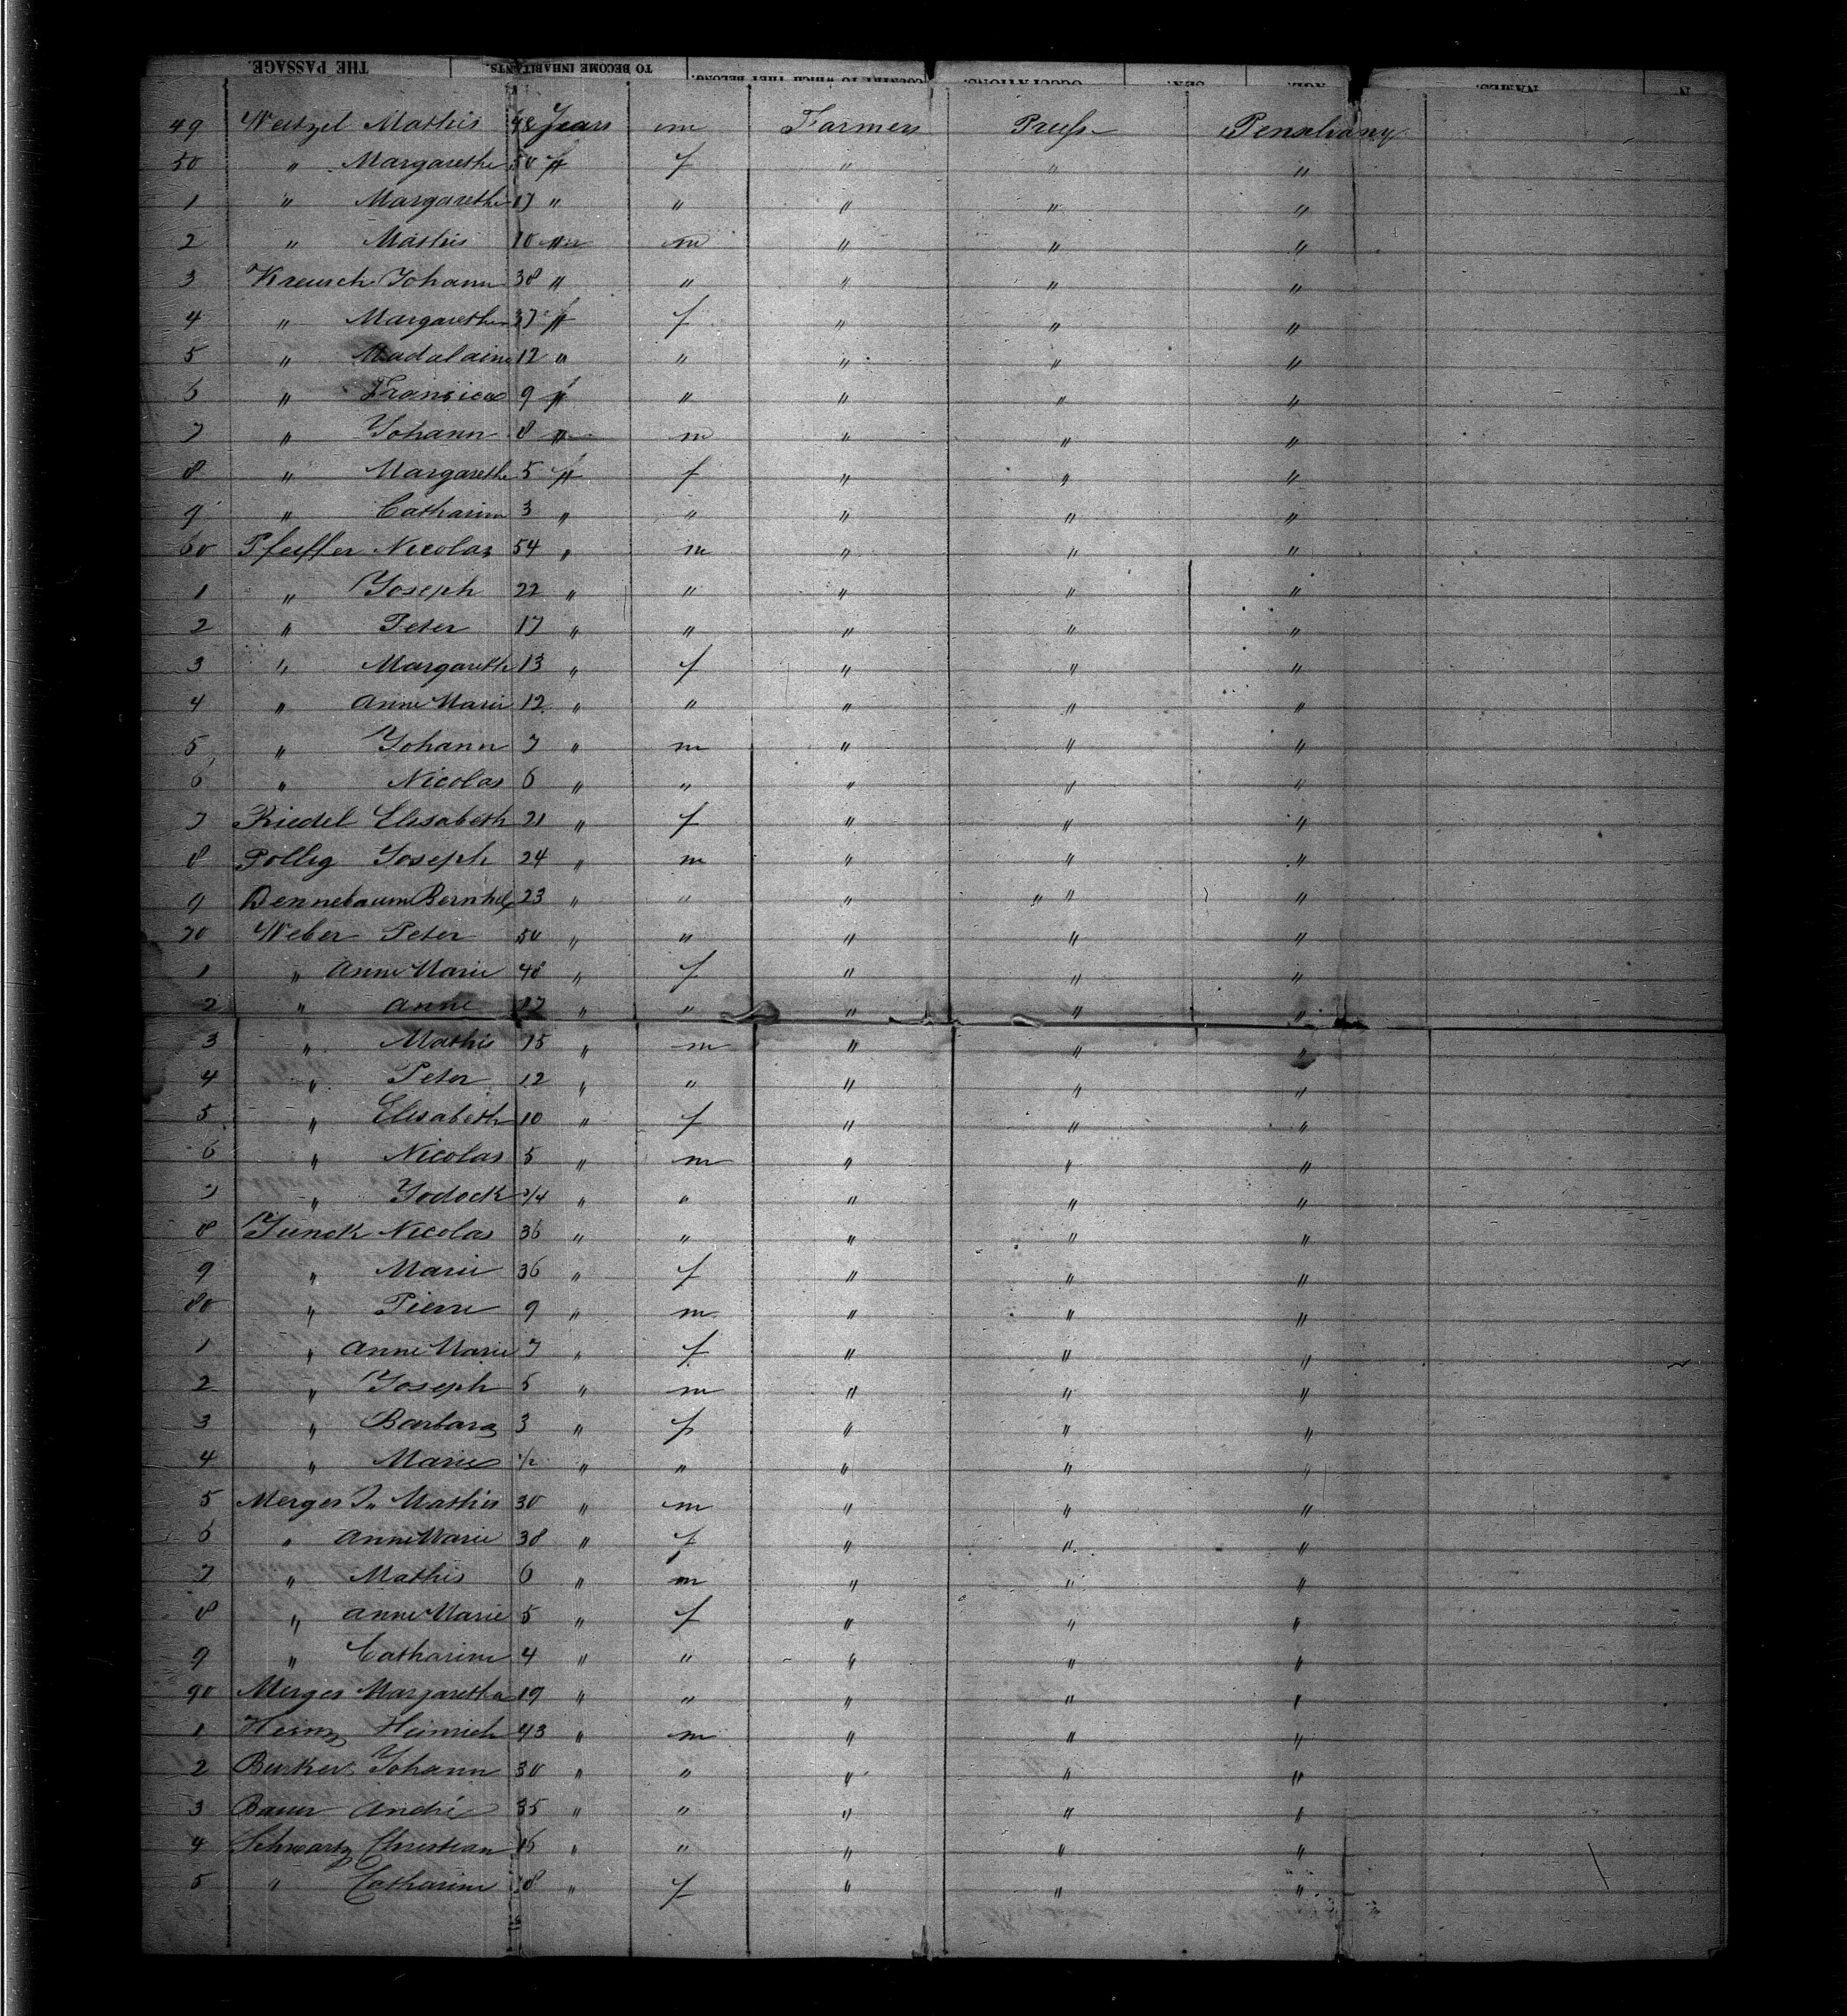 THE PASSAGE. TO BECOME INHABITANTS. COUNTRY TO WHICH THEY BELONG. OCCUPATIONS. SEX. AGE. NAMES. N
49 Weitzel Mathis 48 Years m Farmers Preuß Pensilvany
50 " Margarethe 50 " f " " "
1 " Margarethe 17 " " " " "
2 " Mathis 10 " m " " "
3 Kreusch Johann 38 " " " " "
4 " Margarethe 37 " f " " "
5 " Madalaine 12 " " " " "
6 " Fransica 9 " " " " "
7 " Johann 8 " m " " "
8 " Margarethe 5 " f " " "
9 " Catharine 3 " " " " "
60 Pfeiffer Nicolas 54 " m " " "
1 " Joseph 22 " " " " "
2 " Peter 17 " " " " "
3 " Margareth 13 " f " " "
4 " Anne Marie 12 " " " " "
5 " Johann 7 " m " " "
6 " Nicolas 6 " " " " "
7 Riedel Elisabeth 21 " f " " "
8 Pollig Joseph 24 " m " " "
9 Dennebaum 23 " " " " " "
70 Weber Peter 50 " " " " "
1 " Anne Marie 48 " f " " "
2 " Anne 17 " " " " "
3 " Mathis 15 " m " " "
4 " Peter 12 " " " " "
5 " Elisabeth 10 " f " " "
6 " Nicolas 5 " m " " "
7 " Jodock 3/4 " " " " "
8 Junck Nicolas 36 " " " " "
9 " Marie 36 " f " " "
80 " Pierre 9 " m " " "
1 " Anne Marie 7 " f " " "
2 " Joseph 5 " m " " "
3 " Barbara 3 " f " " "
4 " Marie 1/2 " " " " "
5 Merges J. Mathis 30 " m " " "
6 " Anne Marie 38 " f " " "
7 " Mathis 6 " m " " "
8 " Anne Marie 5 " f " " "
9 " Catharine 4 " " " " "
90 Merges Margaretha 19 " " " " "
1 Heinz Heinrich 43 " m " " "
2 Burker Johann 30 " " " " "
3 Bauer André 35 " " " " "
4 Schwartz Christian 16 " " " " "
5 " Catharine 18 " f " " "